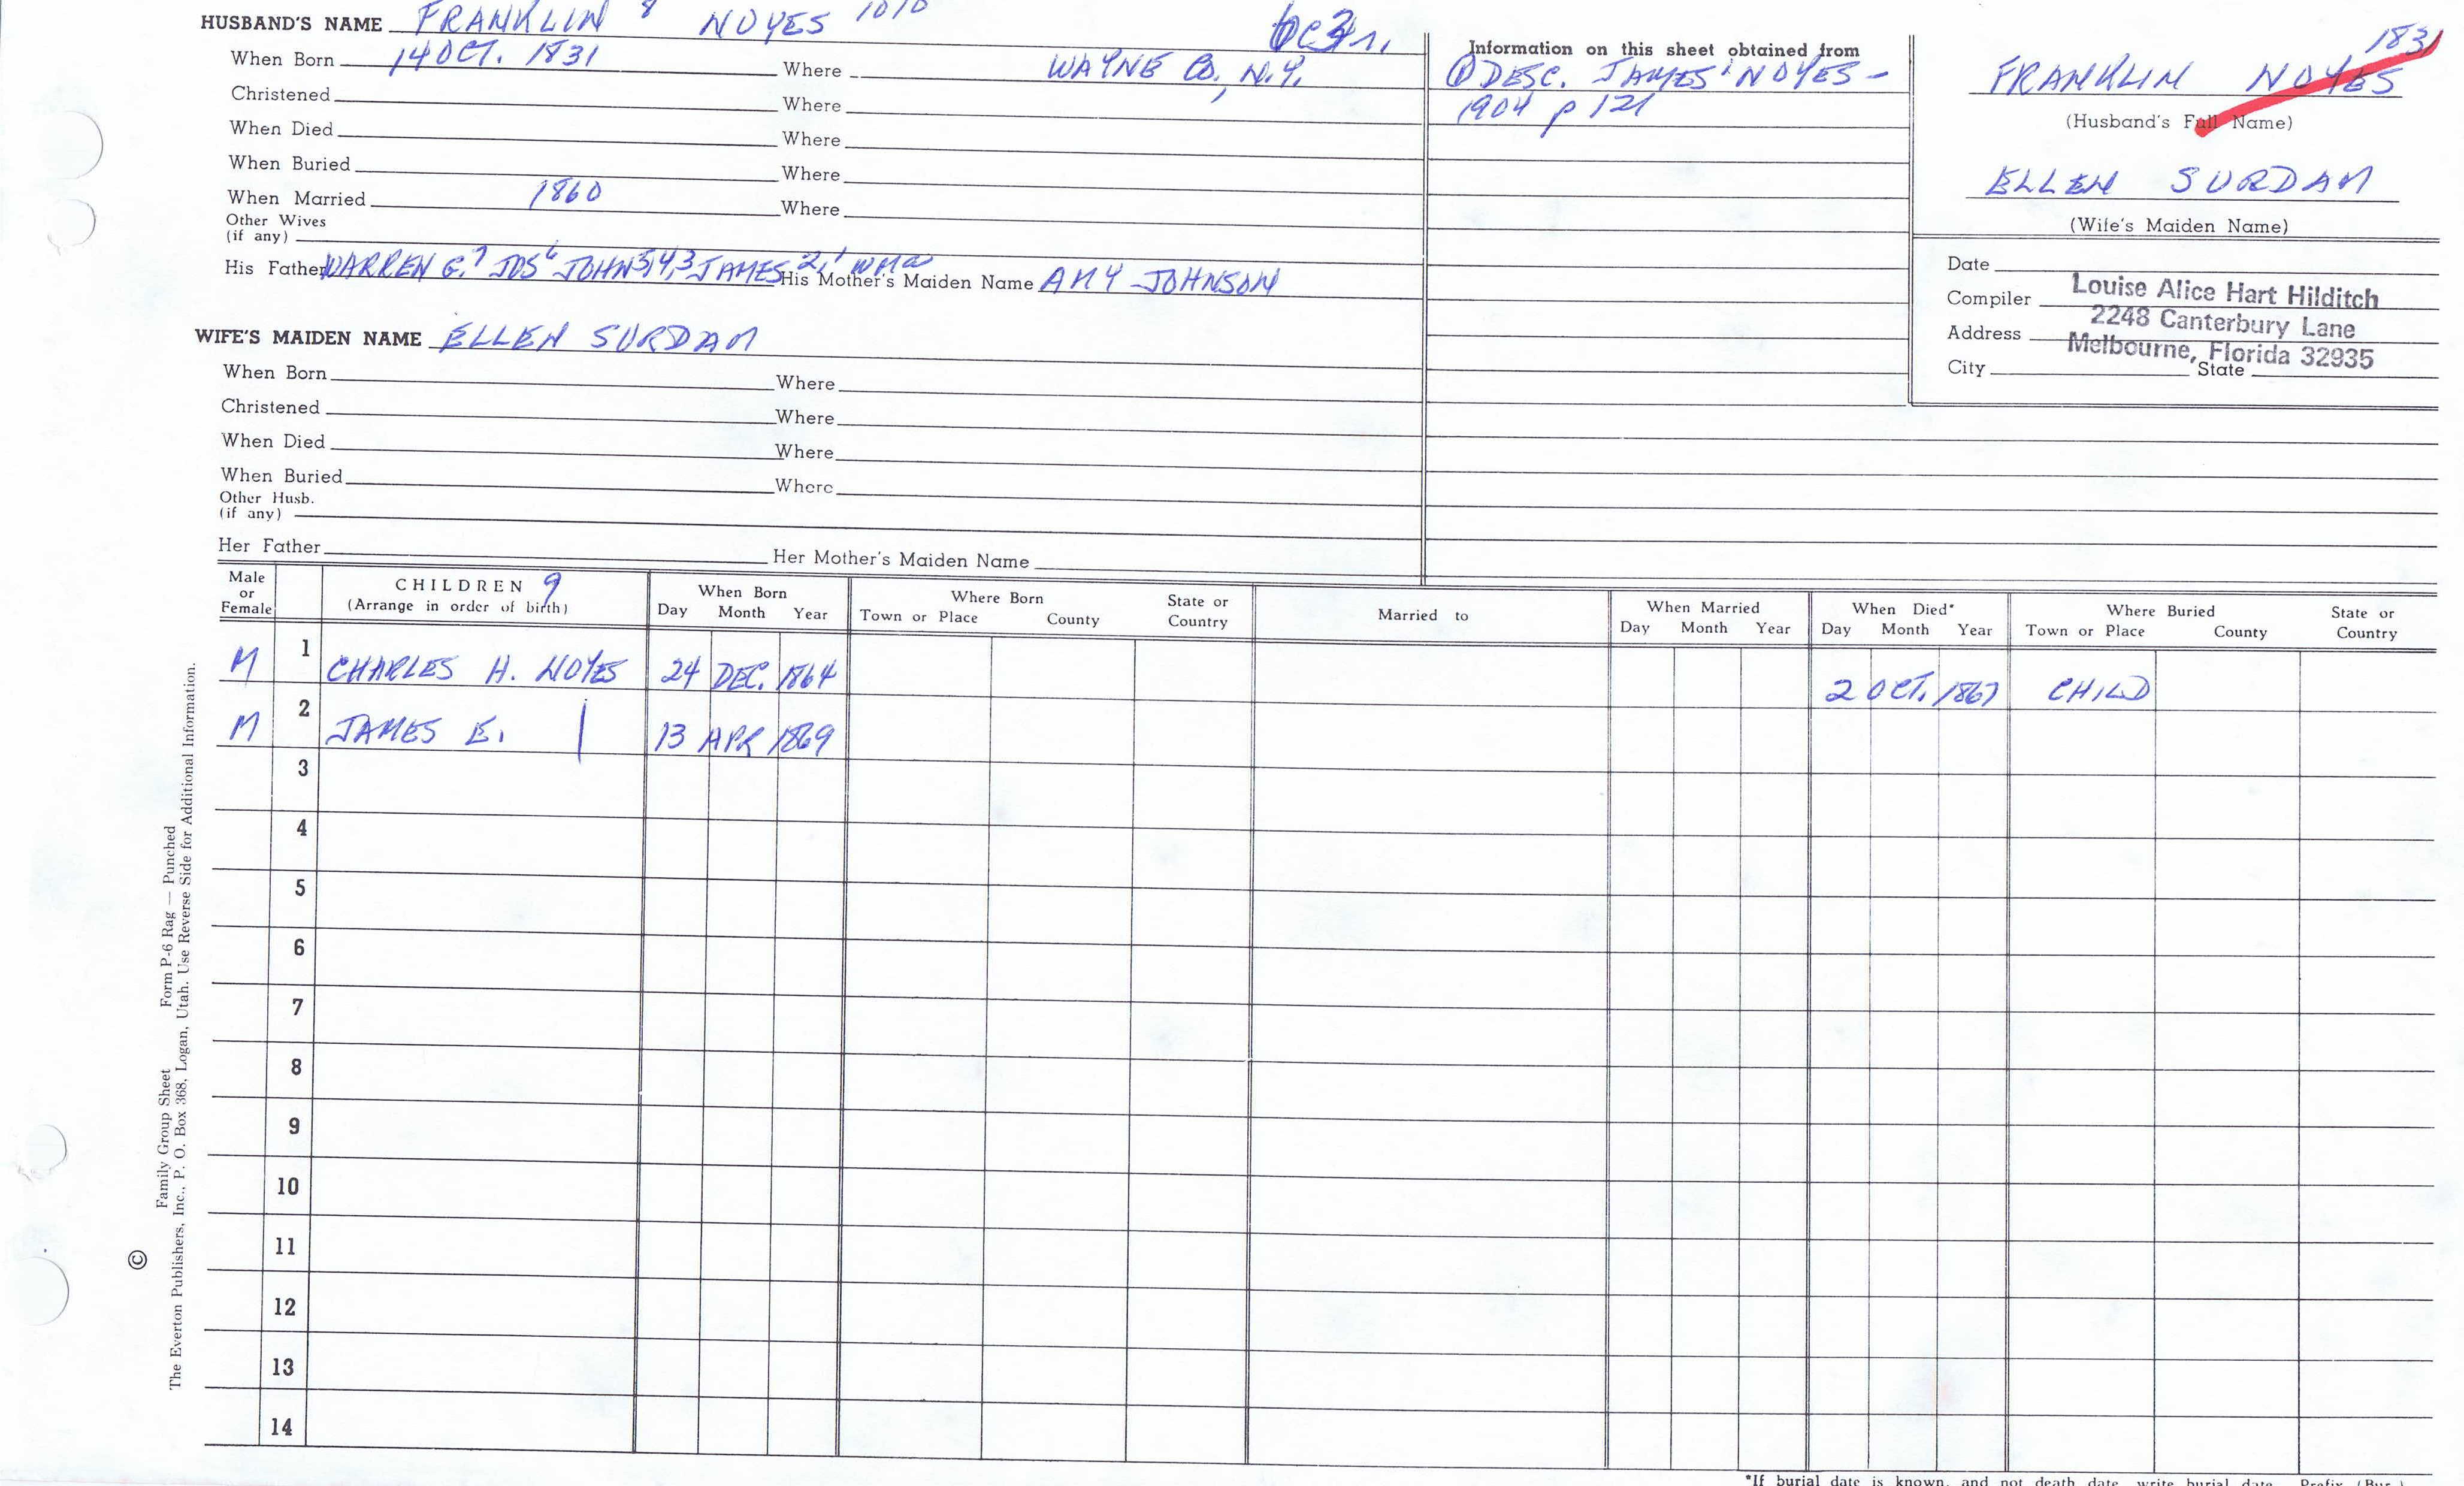 HUSBAND'S NAME FRANKLIN 8 NOYES 1010
When Born 14 OCT. 1831 Where WAYNE CO, N.Y.
Christened Where
When Died Where
When Buried Where
When Married 1860 Where
Other Wives
(if any)
His Father WARREN G.7 JOS6 JOHN5,4,3 JAMES2,1 His Mother's Maiden Name AMY JOHNSON
WIFE'S MAIDEN NAME ELLEN SURDAM
When Born Where
Christened Where
When Died Where
When Buried Where
Other Husb.
(if any)
Her Father Her Mother's Maiden Name
Information on this sheet obtained from
① DESC. JAMES 1 NOYES -
1904 p 121
1831
FRANKLIN NOYES
(Husband's Full Name)
ELLEN SURDAM
(Wife's Maiden Name)
Date
Compiler Louise Alice Hart Hilditch
Address 2248 Canterbury Lane
Melbourne, Florida 32935
City State
Male or Female CHILDREN 9 (Arrange in order of birth) When Born Day Month Year Where Born Town or Place County State or Country Married to When Married Day Month Year When Died* Day Month Year Where Buried Town or Place County State or Country
M 1 CHARLES H. NOYES 24 DEC. 1864 2 OCT. 1867 CHILD
M 2 JAMES E. | 13 APR 1869
3
4
5
6
7
8
9
10
11
12
13
14
Family Group Sheet Form P-6 Rag — Punched
© The Everton Publishers, Inc., P. O. Box 368, Logan, Utah. Use Reverse Side for Additional Information.
*If burial date is known, and not death date, write burial date. Prefix (Bur.)